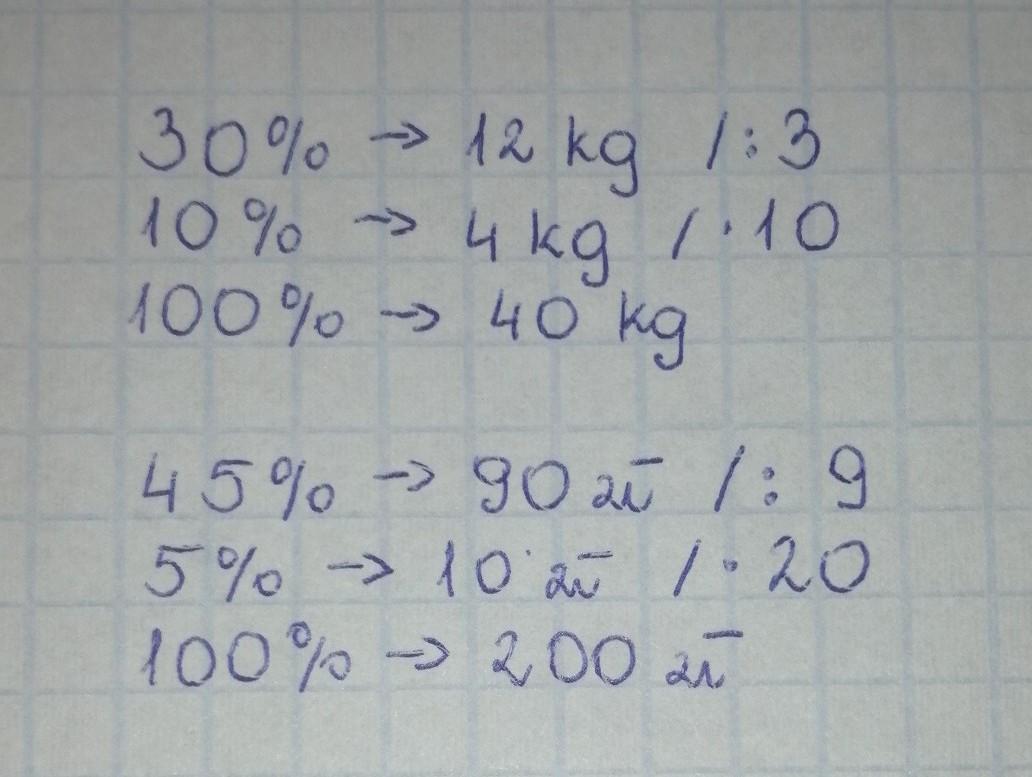 30% → 12 kg /:3
10% → 4 kg /·10
100% → 40 kg
45% → 90 zł /: 9
5% → 10 zł /·20
100% → 200 zł